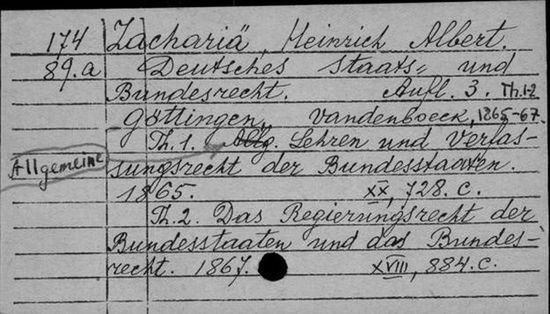 174 Zachariä, Heinrich Albert.
89.a Deutsches Staats= und
Bundesrecht. Aufl. 3. Th. 1-2
Göttingen, Vandenboeck, 1865-67.
Th. 1. Allg. Lehren und Verfas-
Allgemeine
sungsrecht der Bundesstaaten.
1865. XX, 728. c.
Th. 2. Das Regierungsrecht der
Bundesstaaten und das Bundes-
recht. 1867. XVIII, 884. c.